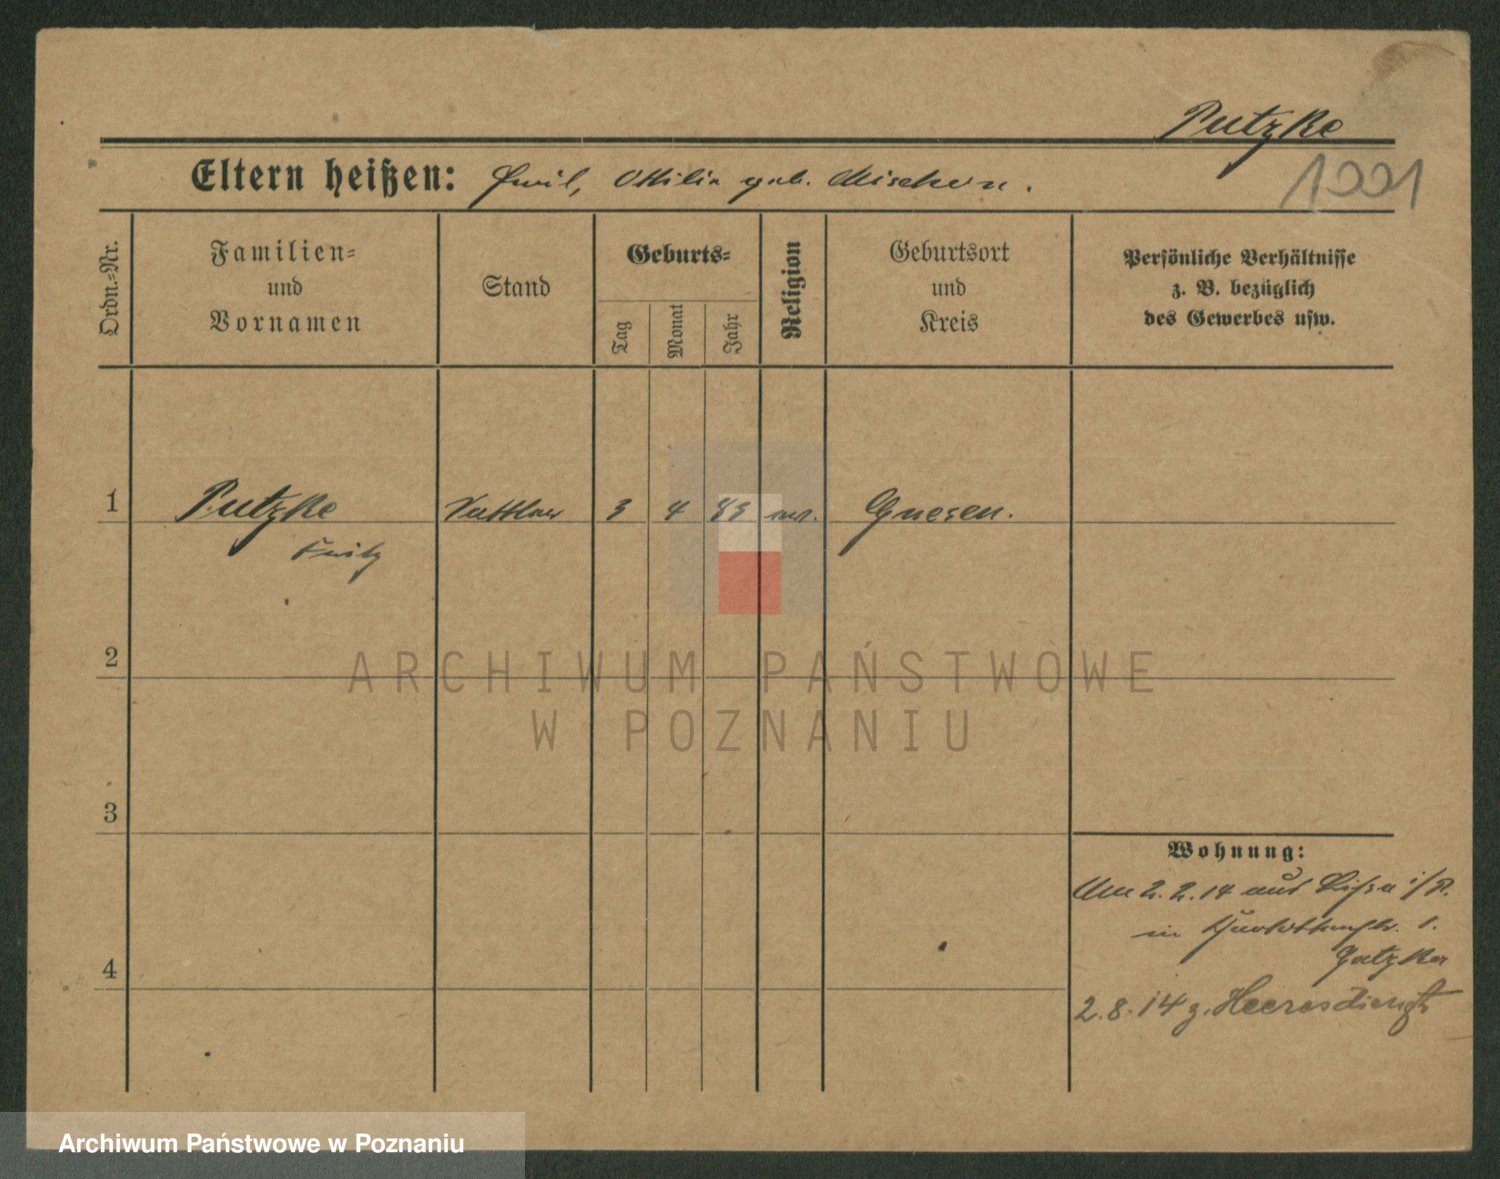 Putzke
1001
Eltern heißen: Emil, Ottilie geb.
Ordn.-Nr.
Familien-
und
Vornamen
Stand
Geburts-
Tag
Monat
Jahr
Religion
Geburtsort
und
Kreis
Persönliche Verhältnisse
z. B. bezüglich
des Gewerbes usw.
1
Putzke
Sattler
3
4
83
ev.
Gnesen.
Fritz
2
ARCHIWUM PAŃSTWOWE
W POZNANIU
3
Wohnung:
Am 2.2.14 aus Lissa i/P.
in 1.
4
2.8.14 z. Heeresdienst
Archiwum Państwowe w Poznaniu